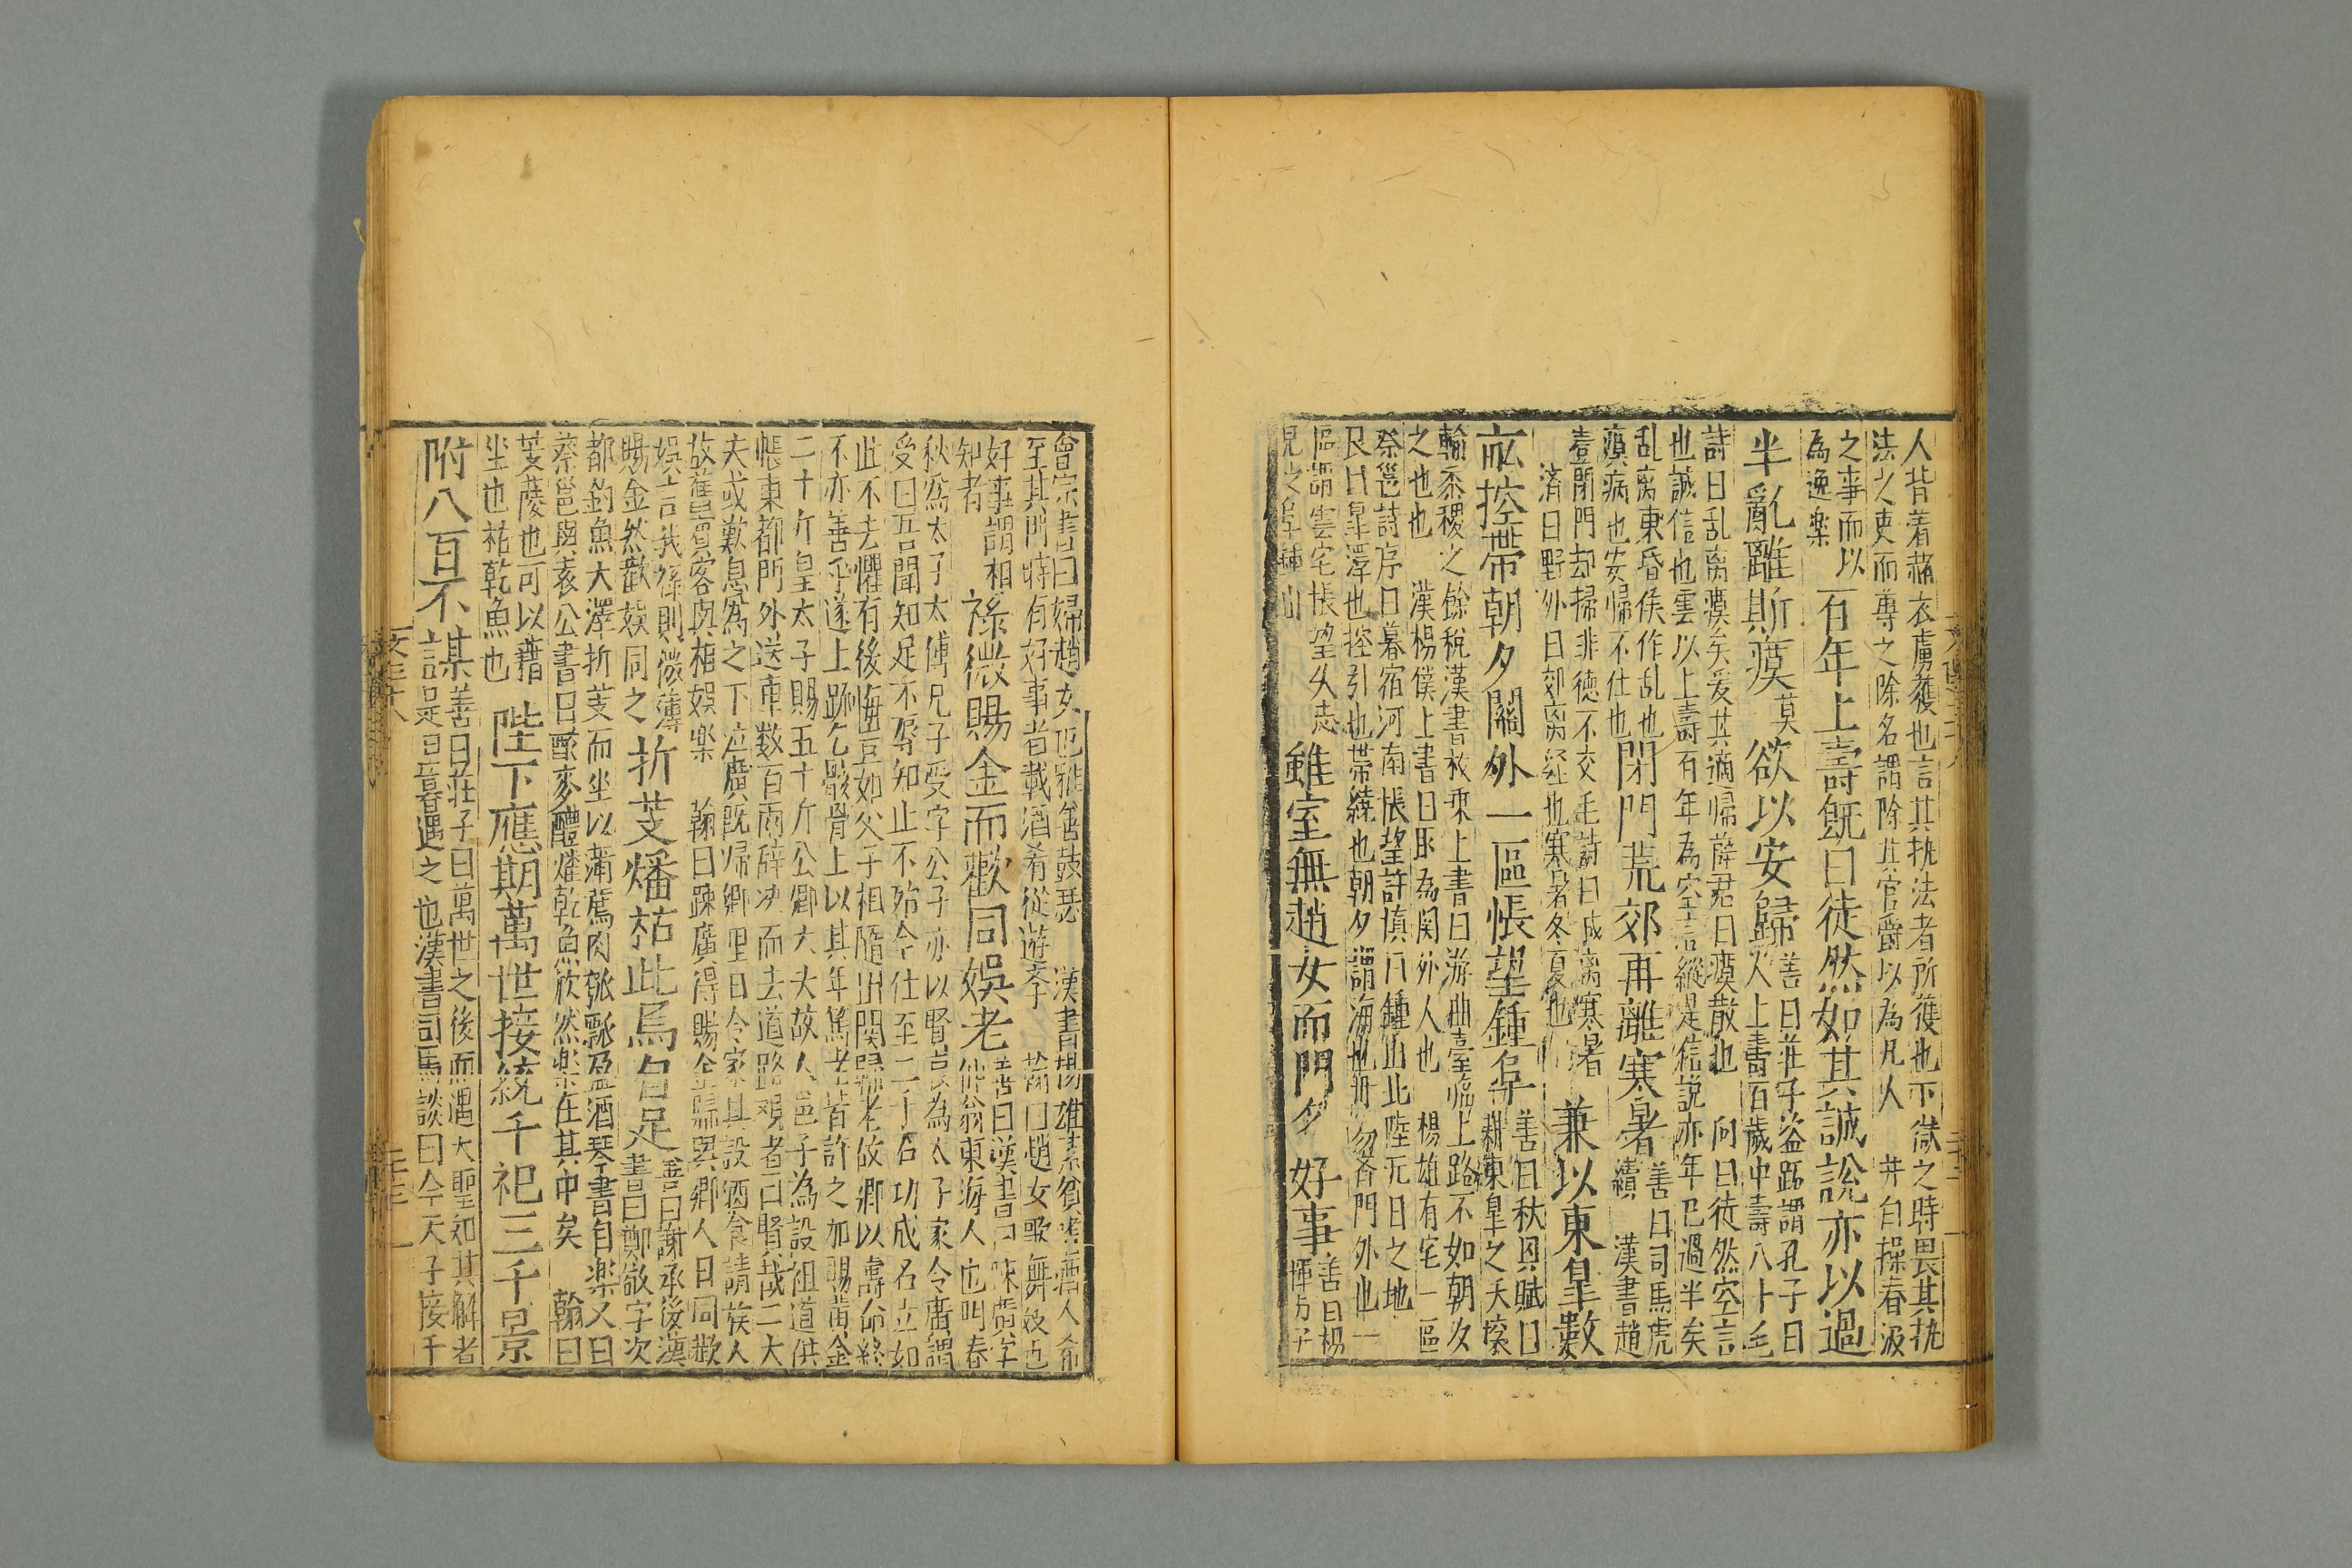 人背着赭衣虜獲也言其执法者所獲也下獄之時畏其执
法之吏而尊之除名謂除其官爵以為凡人 井臼操春汲
之事而以
為逸楽
百年上壽旣曰徒然如其誠說亦以過
半亂離斯瘼莫欲以安歸
善曰莊子盜跖謂孔子曰
人上壽百歲中壽八十毛
詩曰乱离瘼矣爰其適歸薛君曰瘼散也 向曰徒然空言
也誠信也雲以上壽百年為空言縱是信說亦年已過半矣
乱离東昏侯作乱也
瘼病也安歸不仕也
閉門荒郊再離寒暑
善曰司馬虎
續 漢書趙
壹閉門却掃非德不交毛詩曰載离寒暑
済曰野外曰郊离经也寒暑冬夏也
兼以東皐數
畝控帶朝夕關外一區悵望鍾阜
善曰秋興賦曰
耕東皐之沃壤
輸黍稷之餘税漢書枚乘上書曰游曲臺臨上路不如朝夕
之也也 漢楊僕上書曰耻為関外人也 楊雄有宅一區
蔡邕詩序曰暮宿河南悵望許慎曰鍾山北陸无日之地
良曰皐澤也控引也帯繞也朝夕謂海也 門外也一
區謂雲宅悵望失志
皃之阜鍾山
雖室無趙女而門多好事
善曰楊
惲
曾宗書曰婦趙女也雅善鼓瑟 漢書揚雄素貧嗜酒人希
至其門時有好事者載酒肴從遊李 翰曰趙女歌舞妓也
好事謂相
知者
祿微賜金而歡同娛老
善曰漢書曰疎廣字
仲翁東海人也明春
秋為太子太傅兄子受字公子亦以賢良為太子家令廣謂
受曰吾聞知足不辱知止不殆今仕至二千石功成名立如
此不去懼有後悔豈如父子相隨出関歸老故鄉以壽命終
不亦善乎遂上疏乞骸骨上以其年篤老皆許之加賜黄金
二十斤皇太子賜五十斤公卿大夫故人邑子為設祖道供
帳東都門外送車数百兩辞决而去道路觀者曰賢哉二大
夫或歎息為之下泣廣旣歸鄉里日令家具設酒食請族人
故舊賓客與相娛楽 翰曰疎廣得賜金歸與鄉人日同歡
娛言我祿則微薄
賜金然歡娱同之
折芰燔枯此焉自足
善曰謝承後漢
書曰鄭敬字次
都釣魚大澤折芰而坐以蒲薦肉瓠瓢盈酒琴書自楽又曰
蔡邕與袁公書曰酌麥醴燔乾魚欣然楽在其中矣 翰曰
芰菱也可以藉
坐也枯乾魚也
陛下應期萬世接統千祀三千景
附八百不謀
善曰莊子曰萬世之後而遇大聖知其解者
是旦暮遇之也漢書司馬談曰今天子接千